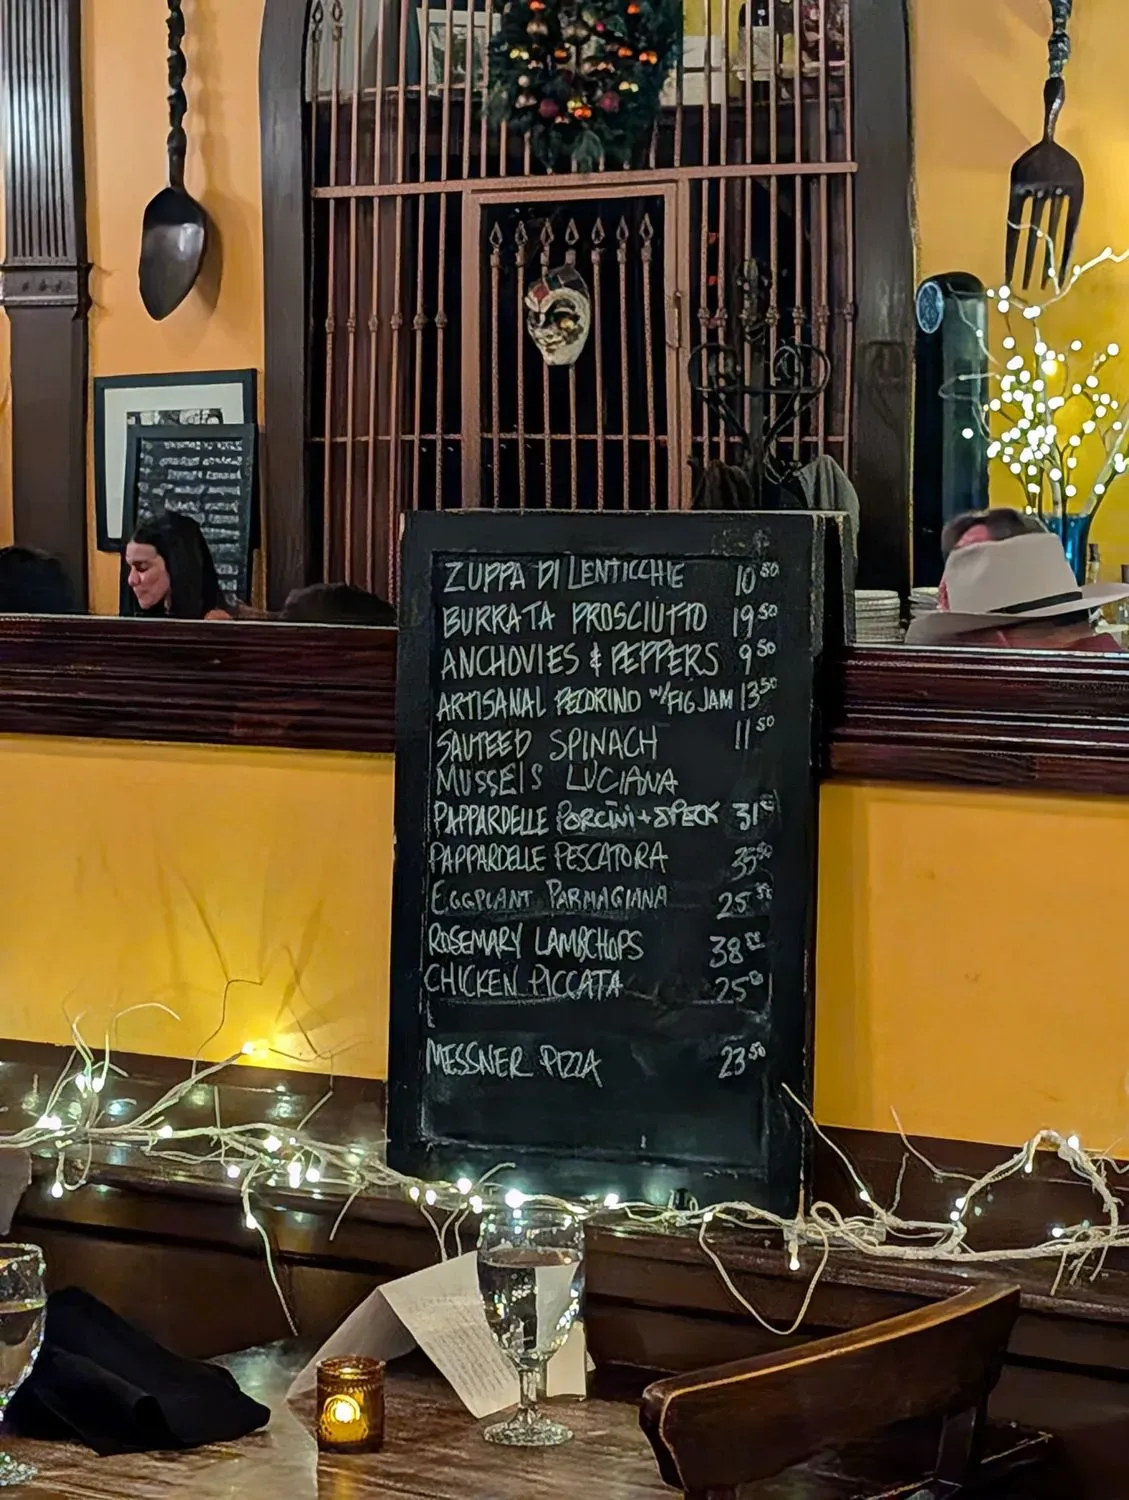 ZUPPA DI LENTICCHIE 10 50
BURRATA PROSCIUTTO 19 50
ANCHOVIES & PEPPERS 9 50
ARTISANAL PECORINO W/FIG JAM 13 50
SAUTEED SPINACH 11 50
MUSSELS LUCIANA
PAPPARDELLE PORCINI + SPECK 31
PAPPARDELLE PESCATORA 35 50
EGGPLANT PARMAGIANA 25
ROSEMARY LAMBCHOPS 38
CHICKEN PICCATA 25
MESSNER PIZZA 23 50